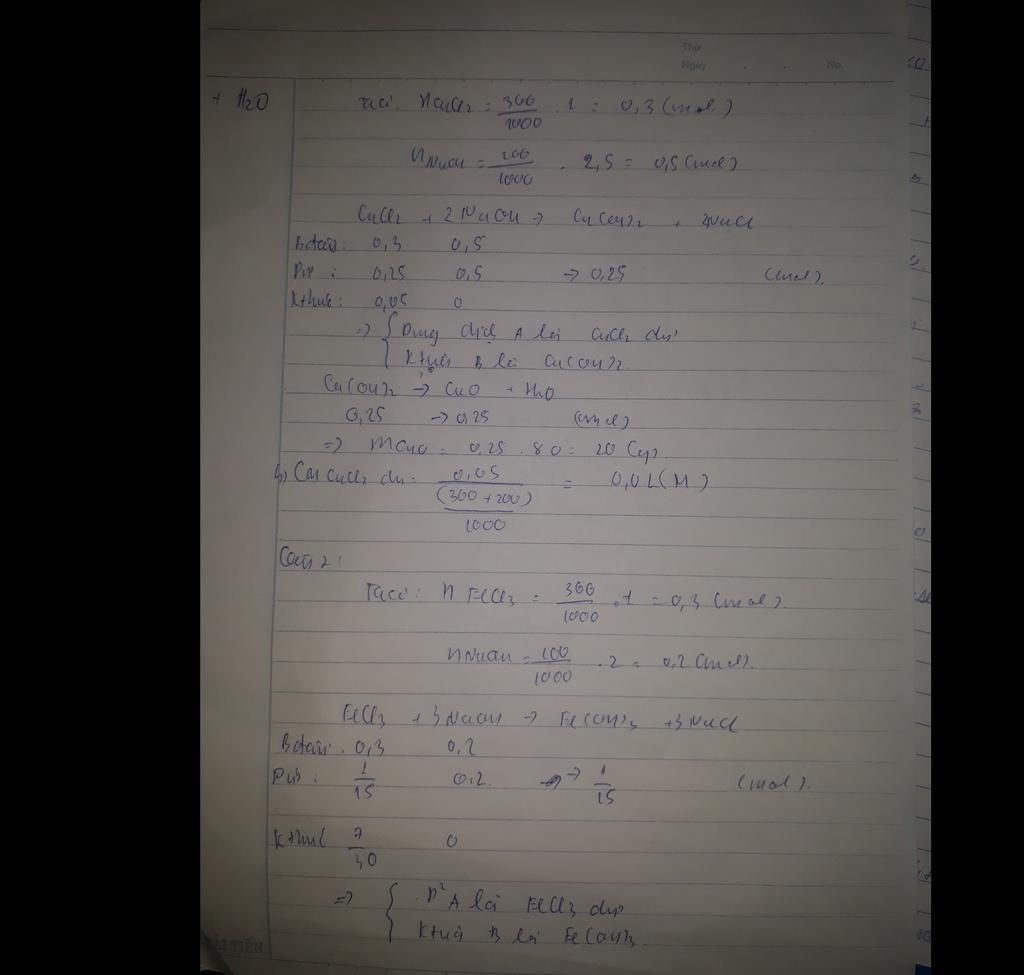 Thứ
Ngày . . No.
+ H2O
Ta có: nCuCl2 = 300/1000 . 1 = 0,3 (mol)
nNaOH = 200/1000 . 2,5 = 0,5 (mol)
CuCl2 + 2NaOH → Cu(OH)2 + 2NaCl
B đầu: 0,3 0,5
Pứ : 0,25 0,5 → 0,25 (mol).
K thúc: 0,05 0
=> { Dung dịch A là CuCl2 dư
K tủa B là Cu(OH)2.
Cu(OH)2 → CuO + H2O
0,25 → 0,25 (mol)
=> mCuO = 0,25 . 80 = 20 (g).
b, CM CuCl2 dư = 0,05 / ((300 + 200)/1000) = 0,01 (M)
Câu 2:
Ta có: n FeCl3 = 300/1000 . 1 = 0,3 (mol).
nNaOH = 100/1000 . 2 = 0,2 (mol).
FeCl3 + 3NaOH → Fe(OH)3 + 3NaCl
B đầu: 0,3 0,2
Pứ : 1/15 0,2 → 1/15 (mol).
K thúc 7/30 0
=> { D² A là FeCl3 dư
K tủa B là Fe(OH)3.
HẢI TIẾN